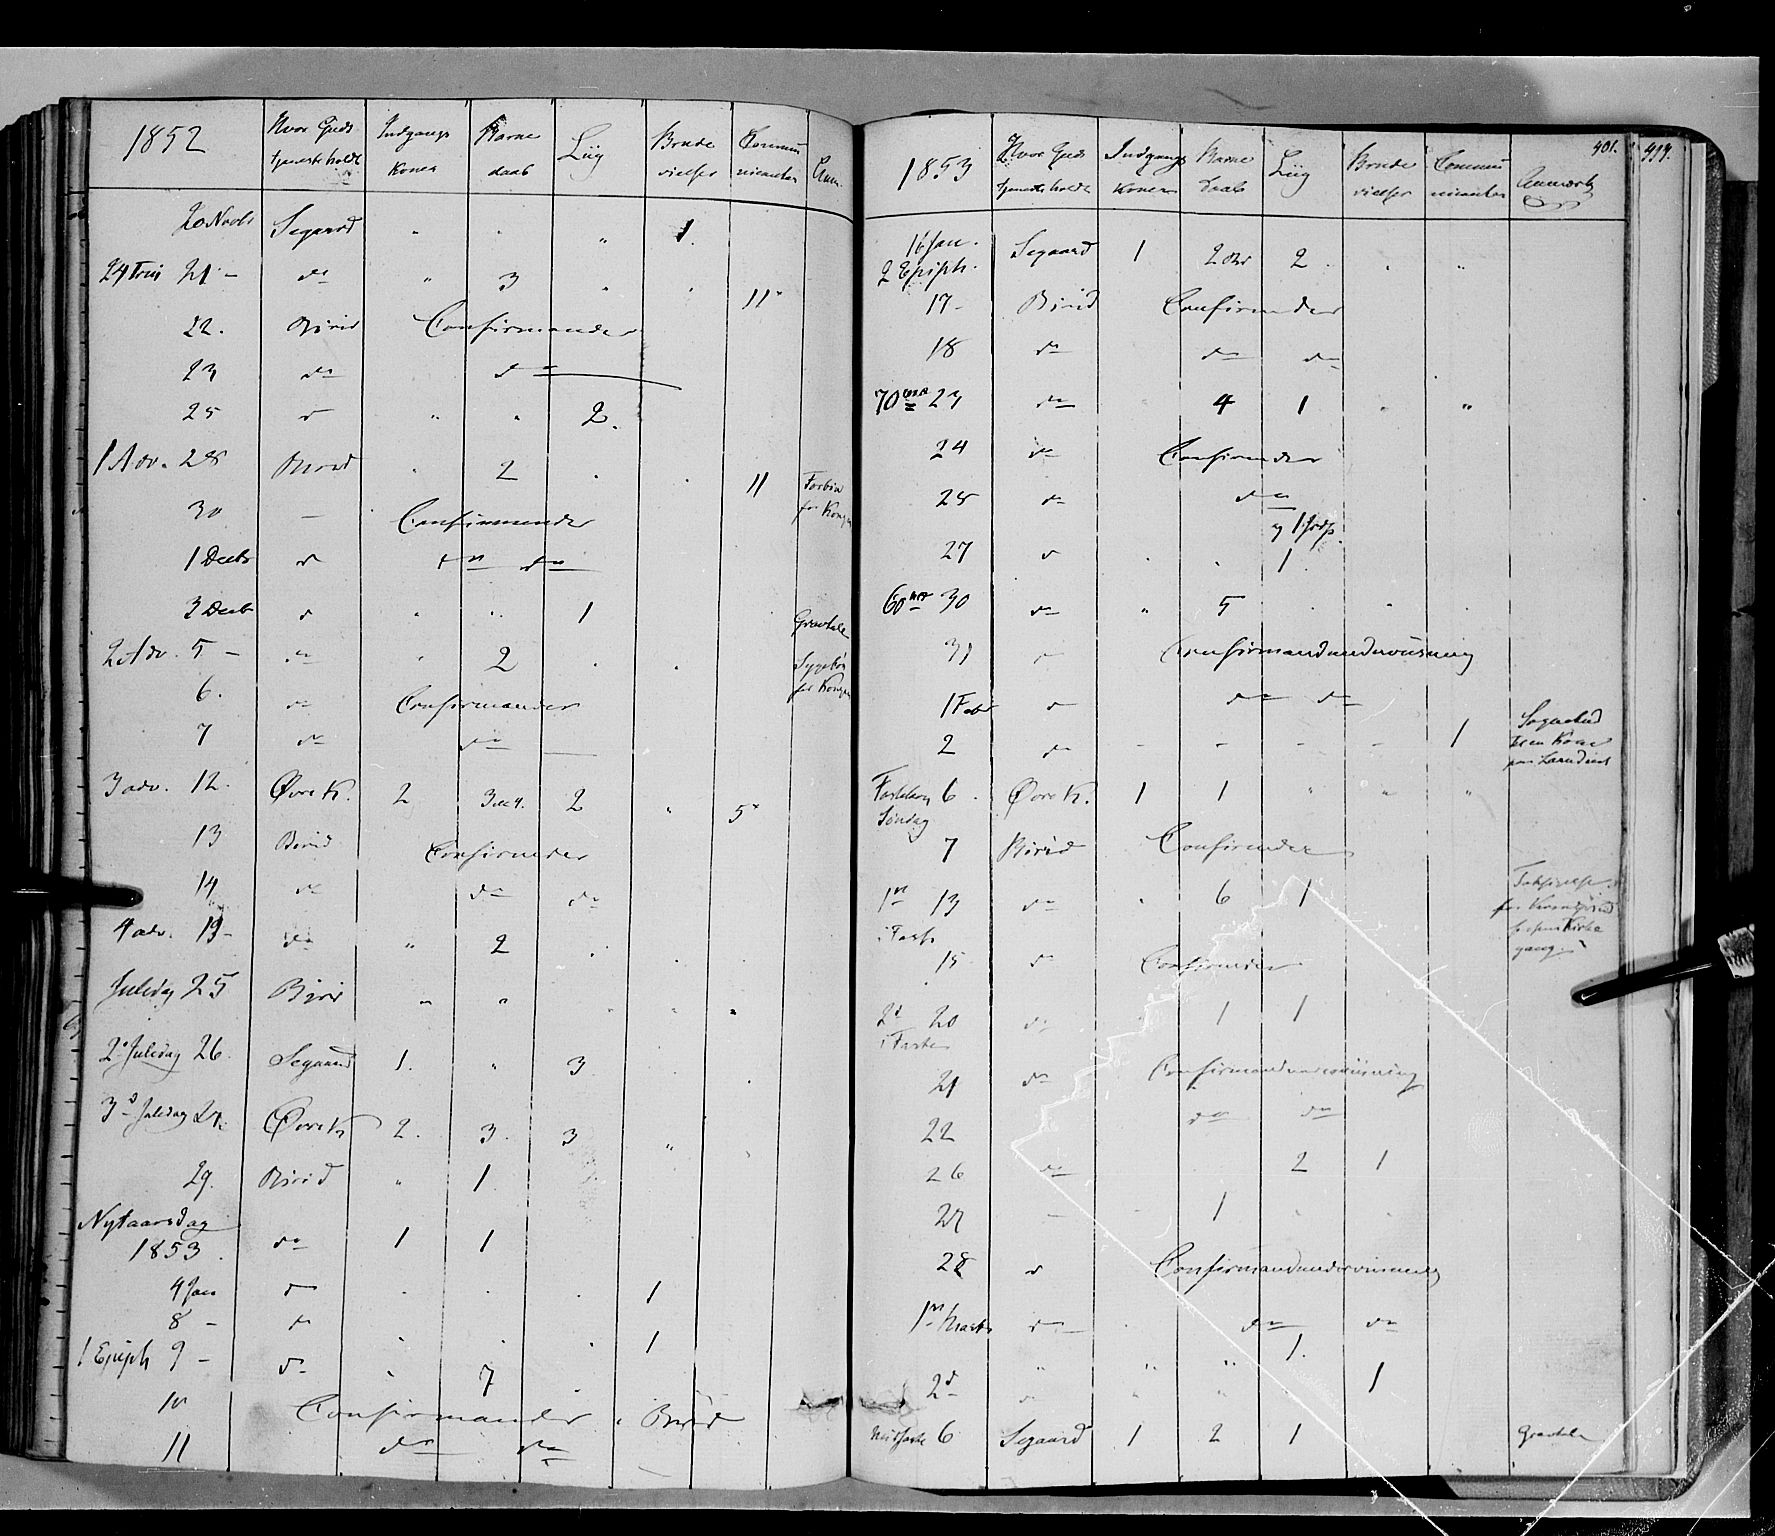 1852 Hvor Guds Indgangs Barne Liig Brude Commu
tjeneste holdt koner daab vielser nicanter Anm.
20 Novbr Segaard " " " 1.
24 Trin 21 - do " 3 " " 11"
22. Birid Confirmander
23 do do
25 do " " 2.
1 Adv. 28 Birid " 2 . . 11 Forbøn
for Kongen
30 — Confirmander
1 Decbr do do do
3 Decbr do " " 1 Gravtale
2 Adv. 5 - do " 2 . .
for Kongen
6. do Confirmander
7 do do
3 adv. 12. Øvre K. 2 2 " 5"
13 Birid Confirmder
14 do do do
4 adv. 19 - do " 2 . .
Juledag 25 Birid " " " " "
2d Juledag 26. Segaard 1. " 3
3d Juledag 27. Øvre K 2. 3. 3 "
29. Birid " 1
Nytaarsdag
1853. do 1 1
4 Jan do . . . 1
8 - do . . . 1
1 Epiph 9 - do . 7 .
10 Confirmander i Birid
11 do do
401. 417.
1853 Hvor Guds Indgangs Barne Liig Brude Commu
tjeneste holdt koner daab vielser nicanter Anmærk
16 Jan. Segaard 1 2 2 . . "
2 Epiph.
17 - Birid Confirmder
18 do do do
70 23 do " 4 1 " "
24 do Confirmder
25 do do
og 1
27 do . . 1.
60 30 do " 5 . . .
31 do Confirmandundervisning
1 Febr do do do
2 do - - - - 1 Sognebud
Fastelavn 6. Øvre K. 1 1 " " "
Søndag
7 Birid Confirmder
1ste 13 do . 6 1 Taksigelse
i Faste
gang.
15 do Confirmder
2d 20 do . 1 1
i Faste
21 do Confirmandundervisning
22 do do
26 do 2 1
27 - . 1 . .
28 do Confirmandundervisning
1ste Marts do do do
" " " 1.
2d " " " 1
Midfaste 6 Segaard 1 2 1 Gravtale